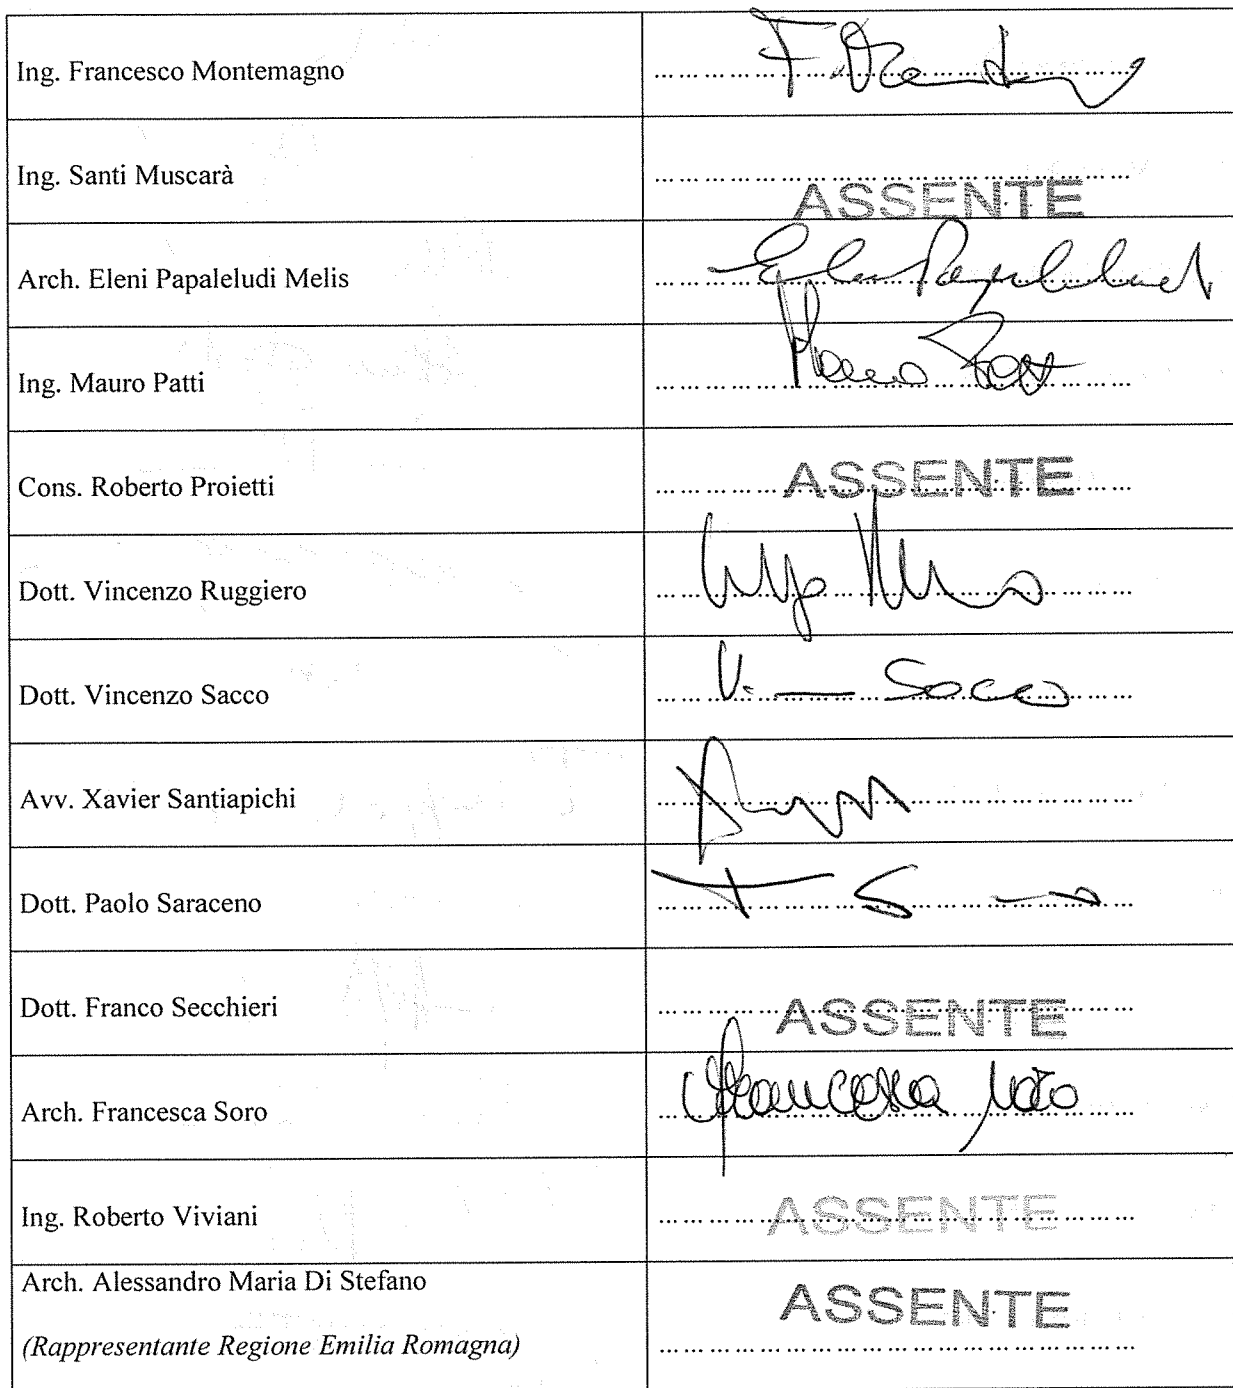 Ing. Francesco Montemagno
Ing. Santi Muscarà
ASSENTE
Arch. Eleni Papaleludi Melis
Ing. Mauro Patti
Cons. Roberto Proietti
ASSENTE
Dott. Vincenzo Ruggiero
Dott. Vincenzo Sacco
V. Sacco
Avv. Xavier Santiapichi
Dott. Paolo Saraceno
Dott. Franco Secchieri
ASSENTE
Arch. Francesca Soro
Francesca Soro
Ing. Roberto Viviani
ASSENTE
Arch. Alessandro Maria Di Stefano
ASSENTE
(Rappresentante Regione Emilia Romagna)